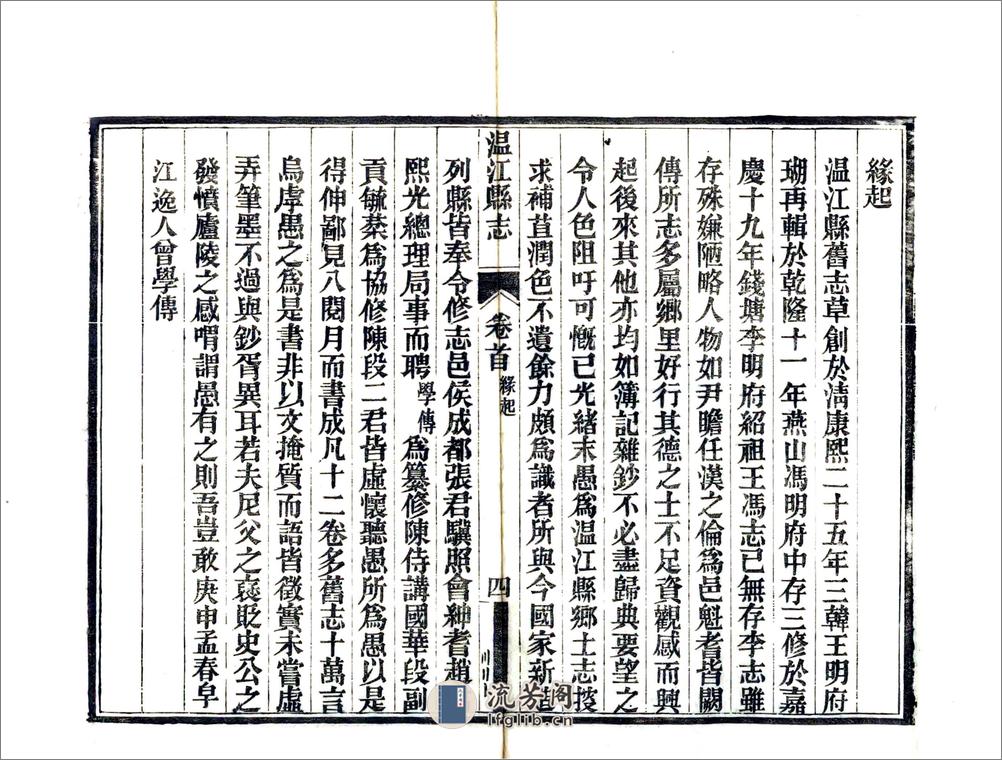 緣起
溫江縣舊志草創於清康熙二十五年三韓王明府
瑚再輯於乾隆十一年燕山馮明府中存三修於嘉
慶十九年錢塘李明府紹祖王馮志已無存李志雖
存殊嫌陋略人物如尹瞻任漢之倫爲邑魁耆皆闕
傳所志多屬鄉里好行其德之士不足資觀感而興
起後來其他亦均如簿記雜鈔不必盡歸典要望之
令人色阻吁可慨已光緒末愚爲温江縣鄉土志掞
求補苴潤色不遺餘力頗爲識者所與今國家新造
温江縣志
卷首
緣起
四
列縣皆奉令修志邑侯成都張君驥照會紳耆趙
熙光總理局事而聘學傳爲纂修陳侍講國華段副
貢毓棻爲協修陳段二君皆虛懷聽愚所爲愚以是
得伸鄙見八閱月而書成凡十二卷多舊志十萬言
烏虖愚之爲是書非以文掩質而語皆徵實未嘗虛
弄筆墨不過與鈔胥異耳若夫尼父之袞貶史公之
發憤廬陵之感喟謂愚有之則吾豈敢庚申孟春皁
江逸人曾學傳
流芳阁
lfglib.cn